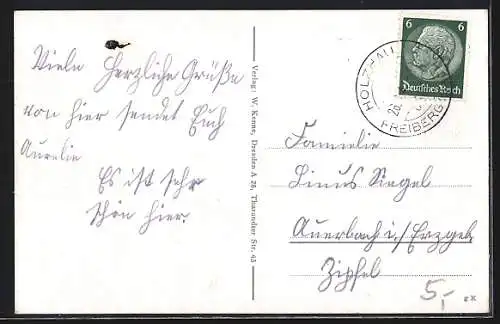 Viele Herzliche Grüße
von hier sendet Euch
Aurelie
Es ist sehr
schön hier.
Verlag: W. Kenne, Dresden A 28, Tharandter Str. 43
6 6
Deutsches Reich
HOLZHAU
FREIBERG
Familie
Linus Siegel
Auerbach i./Erzgeb.
Zipfel
5,-